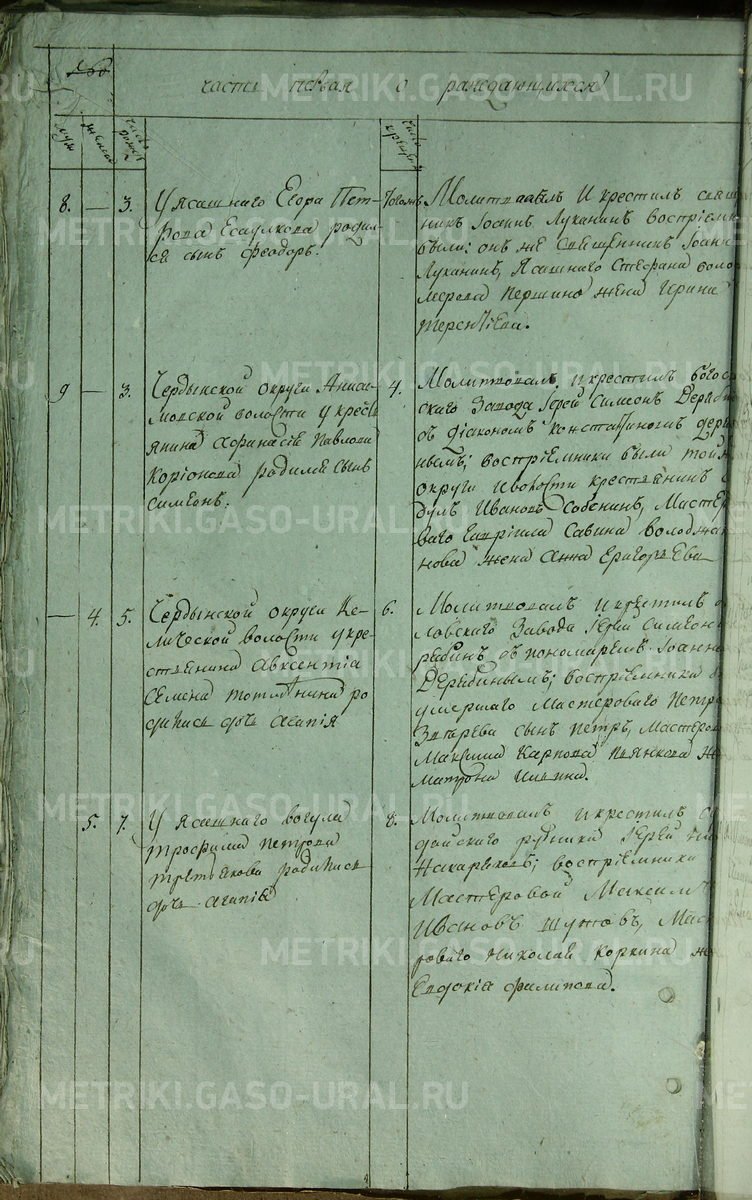 часть первая о раждающихся
муж
женск
число рожден
число крещен
8. — 3. У ясашнаго Егора Пет-
рова Есаулкова родил-
ся сынъ Феодоръ.
Тогожъ Молитвовалъ и крестилъ свящ
никъ Іоаннъ Луканинъ восприемн
были: онъ же священникъ Іоанн
Луканинъ, Ясашнаго Стефана воло
мерова Першина жена Ирина
Терентіева.
9 — 3. Чердынской округи Аниси-
мовской волости у крест
янина Афанасіе Павлова
Коріонова родился сынъ
Симеонъ.
4. Молитвовалъ и крестилъ богос
скаго Завода Іерей Симеонъ Деряб
съ діакономъ Констатиномъ Деря
нымъ; восприемники были той
округи и волости крестьянинъ
дулъ Ивановъ Собенинъ, Масте
ваго Гавріила Савина Володжа
нова жена Анна Григорьева
— 4. 5. Чердынской округи Ке-
лической волости у кре-
стьянина Авксентіа
Семена родилась дочь Агапія
6. Молитвовалъ и крестилъ
ловскаго Завода Іерей Симеонъ
рябинъ съ пономаремъ Іоанно
Дерябинымъ; восприемники
умершаго Мастероваго Петра
сынъ Петръ, Мастеров
Максима Карпова Пянкова
Матрона Ильина.
5. 7. У ясашнаго вогула
Трофима Петрова
Третьякова родилась
дочь Агапія
8. Молитвовалъ и крестилъ
рудника Іерей
восприемники
Мастеровой Максимъ
Ивановъ Шутовъ, Маст
роваго Николая Коркина
Евдокіа Филипова.
METRIKI.GASO-URAL.RU